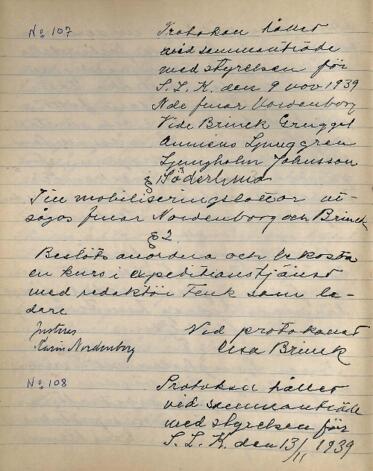 No 107 Protokoll hållet
vid sammanträde
med styrelsen för
S. L. K. den 9 nov 1939
Nde fruar Nordenborg
Vide Brinck
Ljunggren
Ljungholm Johnsson
Söderlund
§
Till mobiliseringslottor ut-
sågos fruar Nordenborg och Brinck
§ 2.
Beslöts anordna och bekosta
en kurs i expeditionstjänst
med redaktör Fenk som le-
dare
Justeras Vid protokollet
Karin Nordenborg Elsa Brinck
No 108 Protokoll hållet
vid sammanträde
med styrelsen för
S. L. K. den 13/11 1939